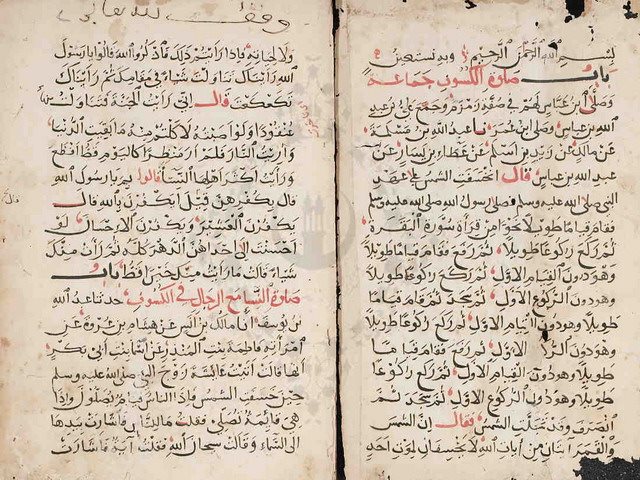 بسم الله الرحمن الرحيم وبه نستعين
باب صلوة الكسوف جماعة
وصلى ابن عباس لهم في صفة زمزم وجمع علي بن عبد
الله بن عباس وصلى ابن عمر نا عبد الله بن مسلمة
عن مالك عن زيد بن اسلم عن عطاء بن يسار عن
عبد الله بن عباس قال انخسفت الشمس على عهد
النبي صلى الله عليه وسلم فصلى رسول الله صلى الله عليه وسلم
فقام قياما طويلا نحوا من قراة سورة البقرة
ثم ركع ركوعا طويلا ثم رفع فقام قياما طويلا
وهو دون القيام الاول ثم ركع ركوعا طويلا
وهو دون الركوع الاول ثم سجد ثم قام قياما
طويلا وهو دون القيام الاول ثم ركع ركوعا طويلا
وهو دون الركوع الاول ثم رفع فقام قياما
طويلا وهو دون القيام الاول ثم ركع ركوعا
طويلا وهو دون الركوع الاول ثم سجد ثم
انصرف وقد تجلت الشمس فقال ان الشمس
والقمر آيتان من آيات الله لا يخسفان لموت احد
وقف لله تعالى
ولا لحياته فاذا رايتم ذلك فاذكروا الله قالوا يا رسول
الله رايناك تناولت شيئا في مقامك ثم رايناك
تكعكعت قال اني رايت الجنة فتناولت
عنقودا ولو اصبته لاكلتم منه ما بقيت الدنيا
واريت النار فلم ار منظرا كاليوم قط افظع
ورايت اكثر اهلها النساء قالوا بم يا رسول الله
قال بكفرهن قيل ايكفرن بالله قال
يكفرن العشير ويكفرن الاحسان لو
احسنت الى احداهن الدهر كله ثم رات منك
شيئا قالت ما رايت منك خيرا قط باب
صلوة النساء مع الرجال في الكسوف حدثنا عبد الله
بن يوسف انا مالك بن انس عن هشام بن عروة عن
امراته فاطمة بنت المنذر عن اسما بنت ابي بكر
انها قالت اتيت عائشة زوج النبي صلى الله عليه وسلم
حين خسفت الشمس فاذا الناس قيام يصلون واذا
هي قائمة تصلي فقلت ما للناس فاشارت بيدها
الى السماء وقالت سبحان الله فقلت آية فاشارت